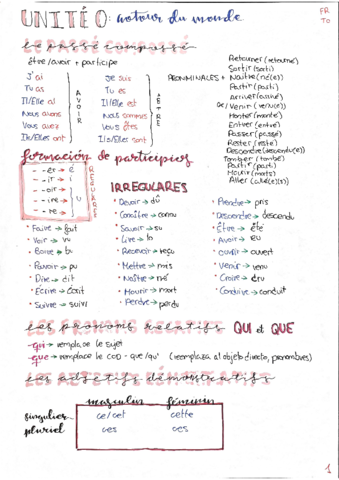 UNITÉ 0: autour du monde
FR
TO
le passé composé
être/avoir + participe
J'ai
Tu as
Il/Elle a
Nous avons
Vous avez
Ils/Elles ont
AVOIR
Je suis
Tu es
Il/Elle est
Nous sommes
Vous êtes
Ils/Elles sont
ÊTRE
PRONMINALES +
Retourner (retourné)
Sortir (sorti)
Naître (né(e))
Partir (parti)
Arriver (arrivé)
Venir (venu(e))
Monter (monté)
Entrer (entré)
Passer (passé)
Rester (resté)
Descendre (descendu(e))
Tomber (tombé)
Partir (parti)
Mourir (mort)
Aller
formación de participios
--er → é
--ir → i
--oir →
--ire → u
--re →
REGULARES
IRREGULARES
• Faire → fait
• Voir → vu
• Boire → bu
• Pouvoir → pu
• Dire → dit
• Écrire → écrit
• Suivre → suivi
• Devoir → dû
• Connaître → connu
• Savoir → su
• Lire → lu
• Recevoir → reçu
• Mettre → mis
• Naître → né
• Mourir → mort
• Perdre → perdu
• Prendre → pris
• Descendre → descendu
• Être → été
• Avoir → eu
• ouvrir → ouvert
• Venir → venu
• Croire → cru
• Conduire → conduit
les pronoms relatifs QUI et QUE
-qui → remplace le sujet
-que → remplace le COD - que/qu' (reemplaza al objeto directo, pronombres)
les adjetifs démostratifs
masculin féminin
singulier ce/cet cette
pluriel ces ces
1